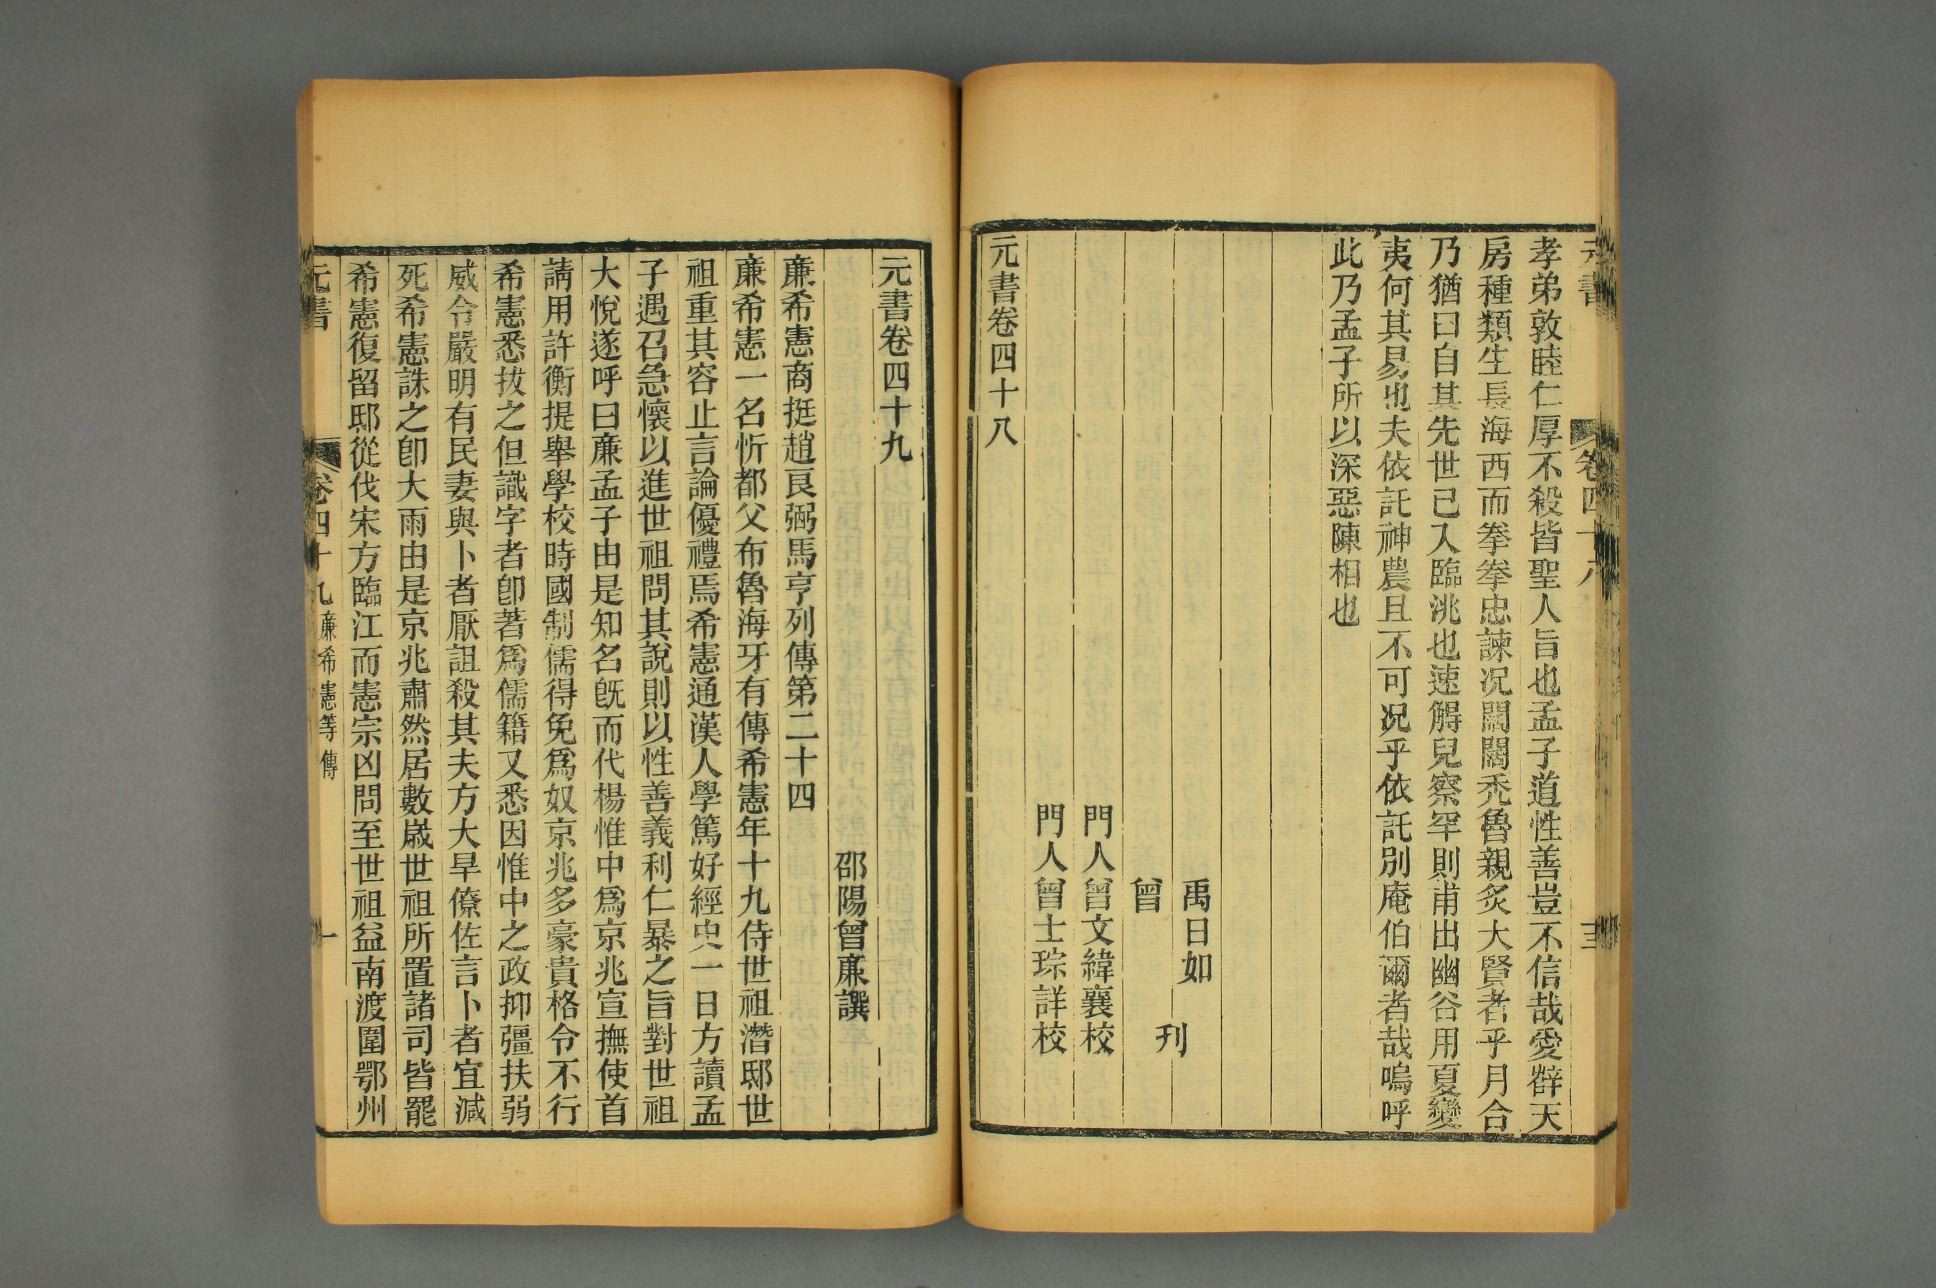 元書
卷四十八
十三
孝弟敦睦仁厚不殺皆聖人旨也孟子道性善豈不信哉愛辥天
房種類生長海西而拳拳忠諫况闊闊禿魯親炙大賢者乎月合
乃猶曰自其先世已入臨洮也速䚟兒察罕則甫出幽谷用夏變
夷何其易也夫依託神農且不可况乎依託別庵伯爾者哉嗚呼
此乃孟子所以深惡陳相也
禹日如
曾
刊
門人曾文緯襄校
門人曾士琮詳校
元書卷四十八
元書卷四十九
邵陽曾廉譔
廉希憲商挺趙良弼馬亨列傳第二十四
廉希憲一名忻都父布魯海牙有傳希憲年十九侍世祖潛邸世
祖重其容止言論優禮焉希憲通漢人學篤好經史一日方讀孟
子遇召急懷以進世祖問其說則以性善義利仁暴之旨對世祖
大悅遂呼曰廉孟子由是知名旣而代楊惟中爲京兆宣撫使首
請用許衡提舉學校時國制儒得免爲奴京兆多豪貴格令不行
希憲悉拔之但識字者卽著爲儒籍又悉因惟中之政抑彊扶弱
威令嚴明有民妻與卜者厭詛殺其夫方大旱僚佐言卜者宜減
死希憲誅之卽大雨由是京兆肅然居數歲世祖所置諸司皆罷
希憲復留邸從伐宋方臨江而憲宗凶問至世祖益南渡圍鄂州
元書
卷四十九
廉希憲等傳
一